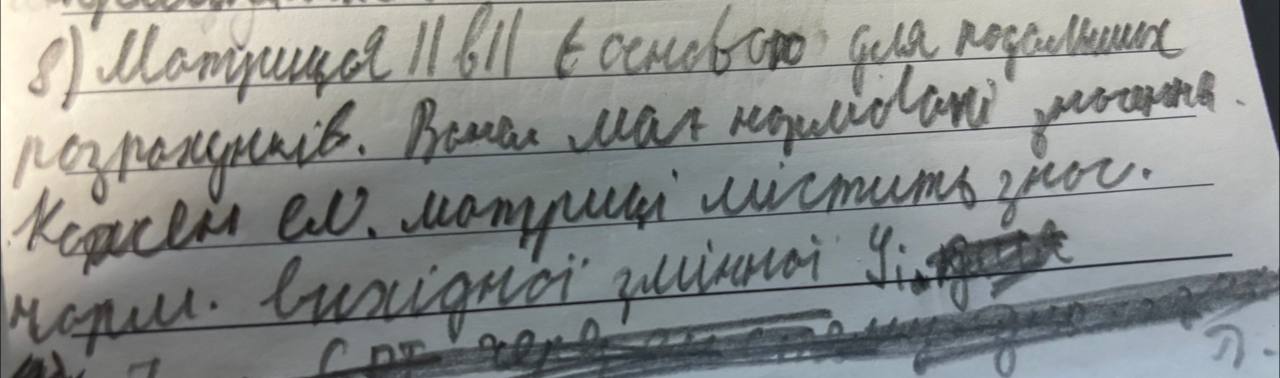 8) Матриця ||в|| є основою для подальших
розрахунків. Вона має нормовані значення.
Кожен ел. матриці містить знач.
норм. вихідної змінної Yi